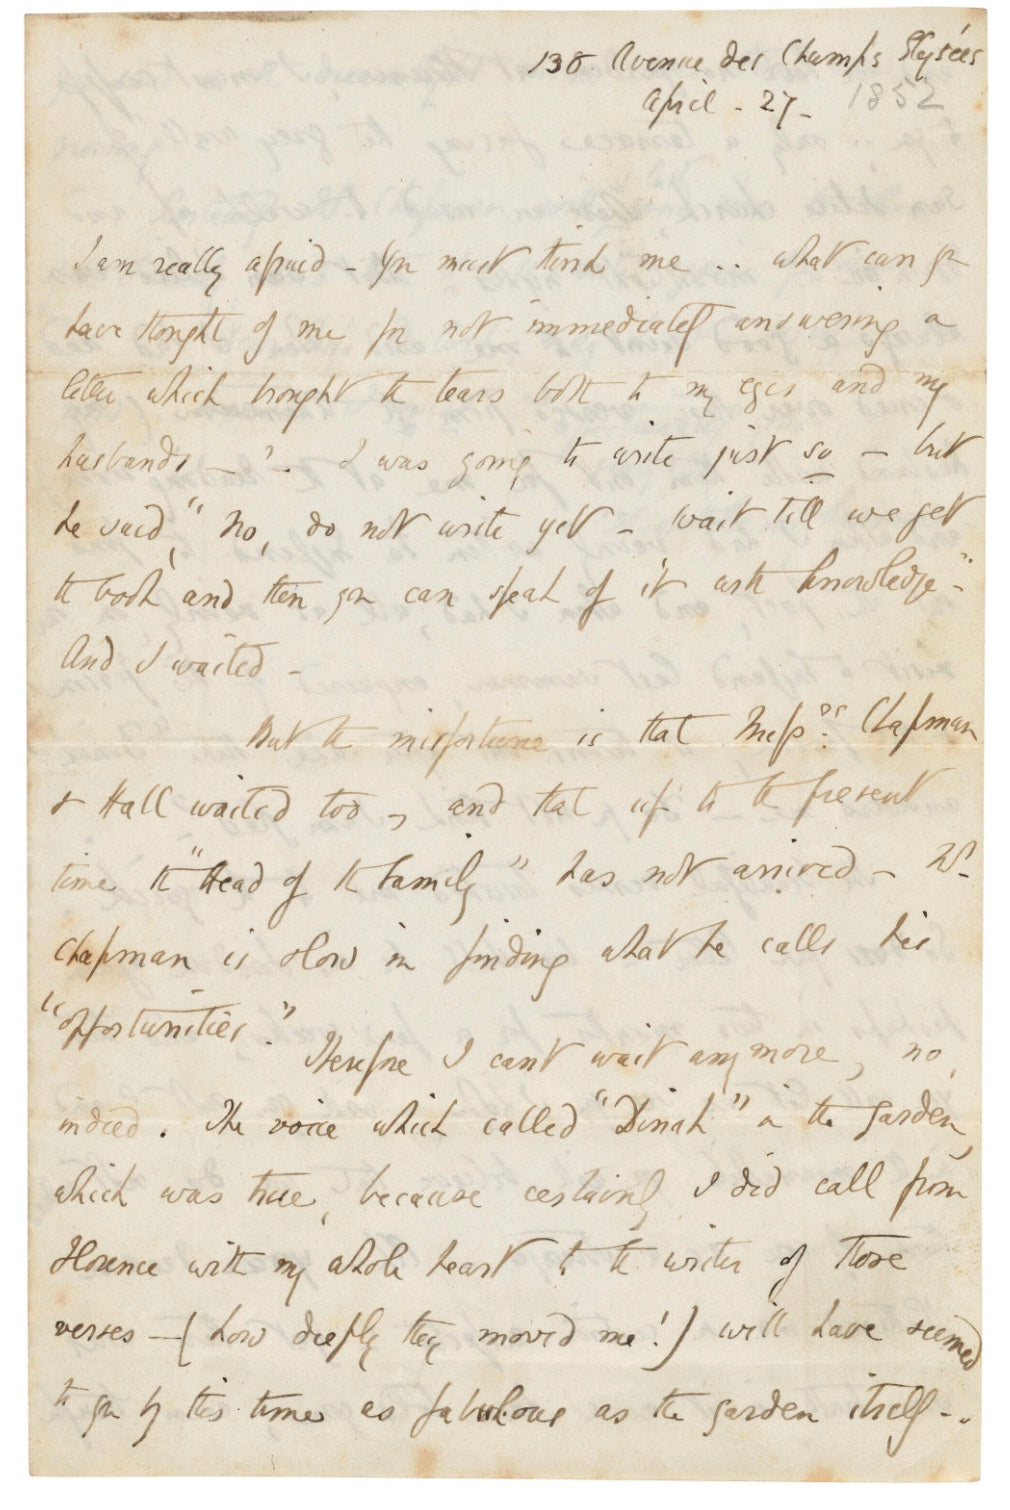 138. Avenue des Champs Elysées
April - 27- 1852
I am really afraid - you must think me .. what can you
have thought of me for not immediately answering a
letter which brought the tears both to my eyes and my
husbands - ? - I was going to write just so - but
he said, "No, do not write yet - wait till we get
the book and then you can speak of it with knowledge"-
And I waited -
But the misfortune is that Messrs. Chapman
& Hall waited too -, and that up to the present
time the "Head of the Family" has not arrived - Mr.
Chapman is slow in finding what he calls his
"opportunities."
Therefore I cant wait any more, no,
indeed. The voice which called "Dinah" in the garden,
which was true, because certainly I did call from
Florence with my whole heart to the writer of those
verses - (how deeply they moved me!) will have seemed
to you by this time as fabulous as the garden itself -..